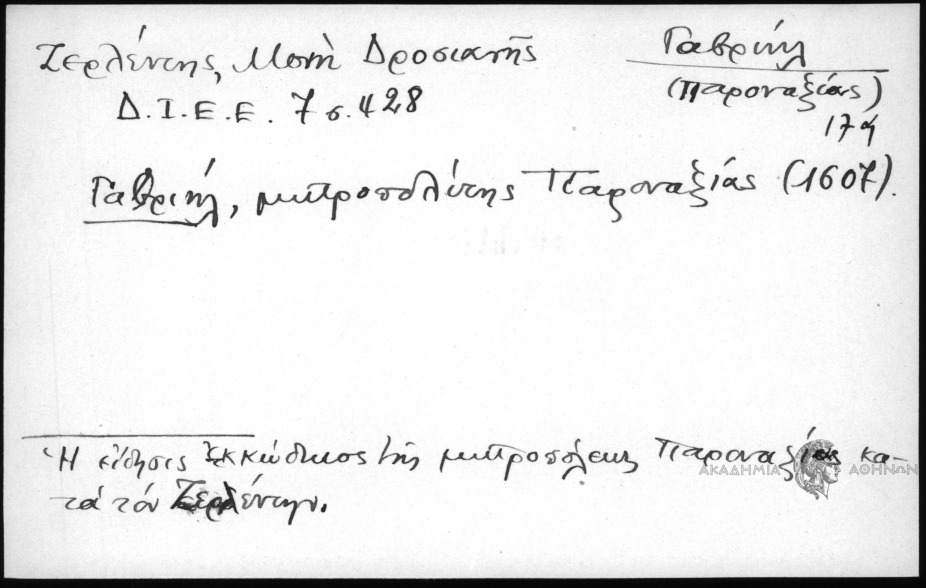 Ζερλέντης, Μονὴ Δροσιανῆς
Δ.Ι.Ε.Ε. 7 σ. 428
Γαβριήλ
(Παροναξίας)
17
Γαβριήλ, μητροπολίτης Παροναξίας (1607).
Ἡ εἴδησις ἐκ κώδικος τῆς μητροπόλεως Παροναξίας κα-
τὰ τόν Ζερλέντην.
ΑΚΑΔΗΜΙΑ ΑΘΗΝΩΝ